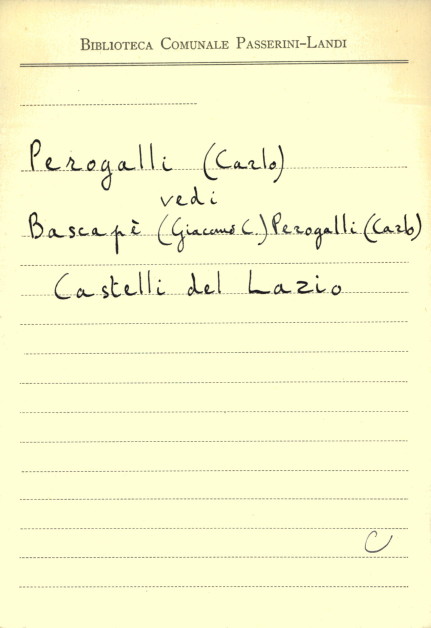 BIBLIOTECA COMUNALE PASSERINI-LANDI
Perogalli (Carlo)
vedi
Bascapè (Giacomo C.) Perogalli (Carlo)
Castelli del Lazio
C